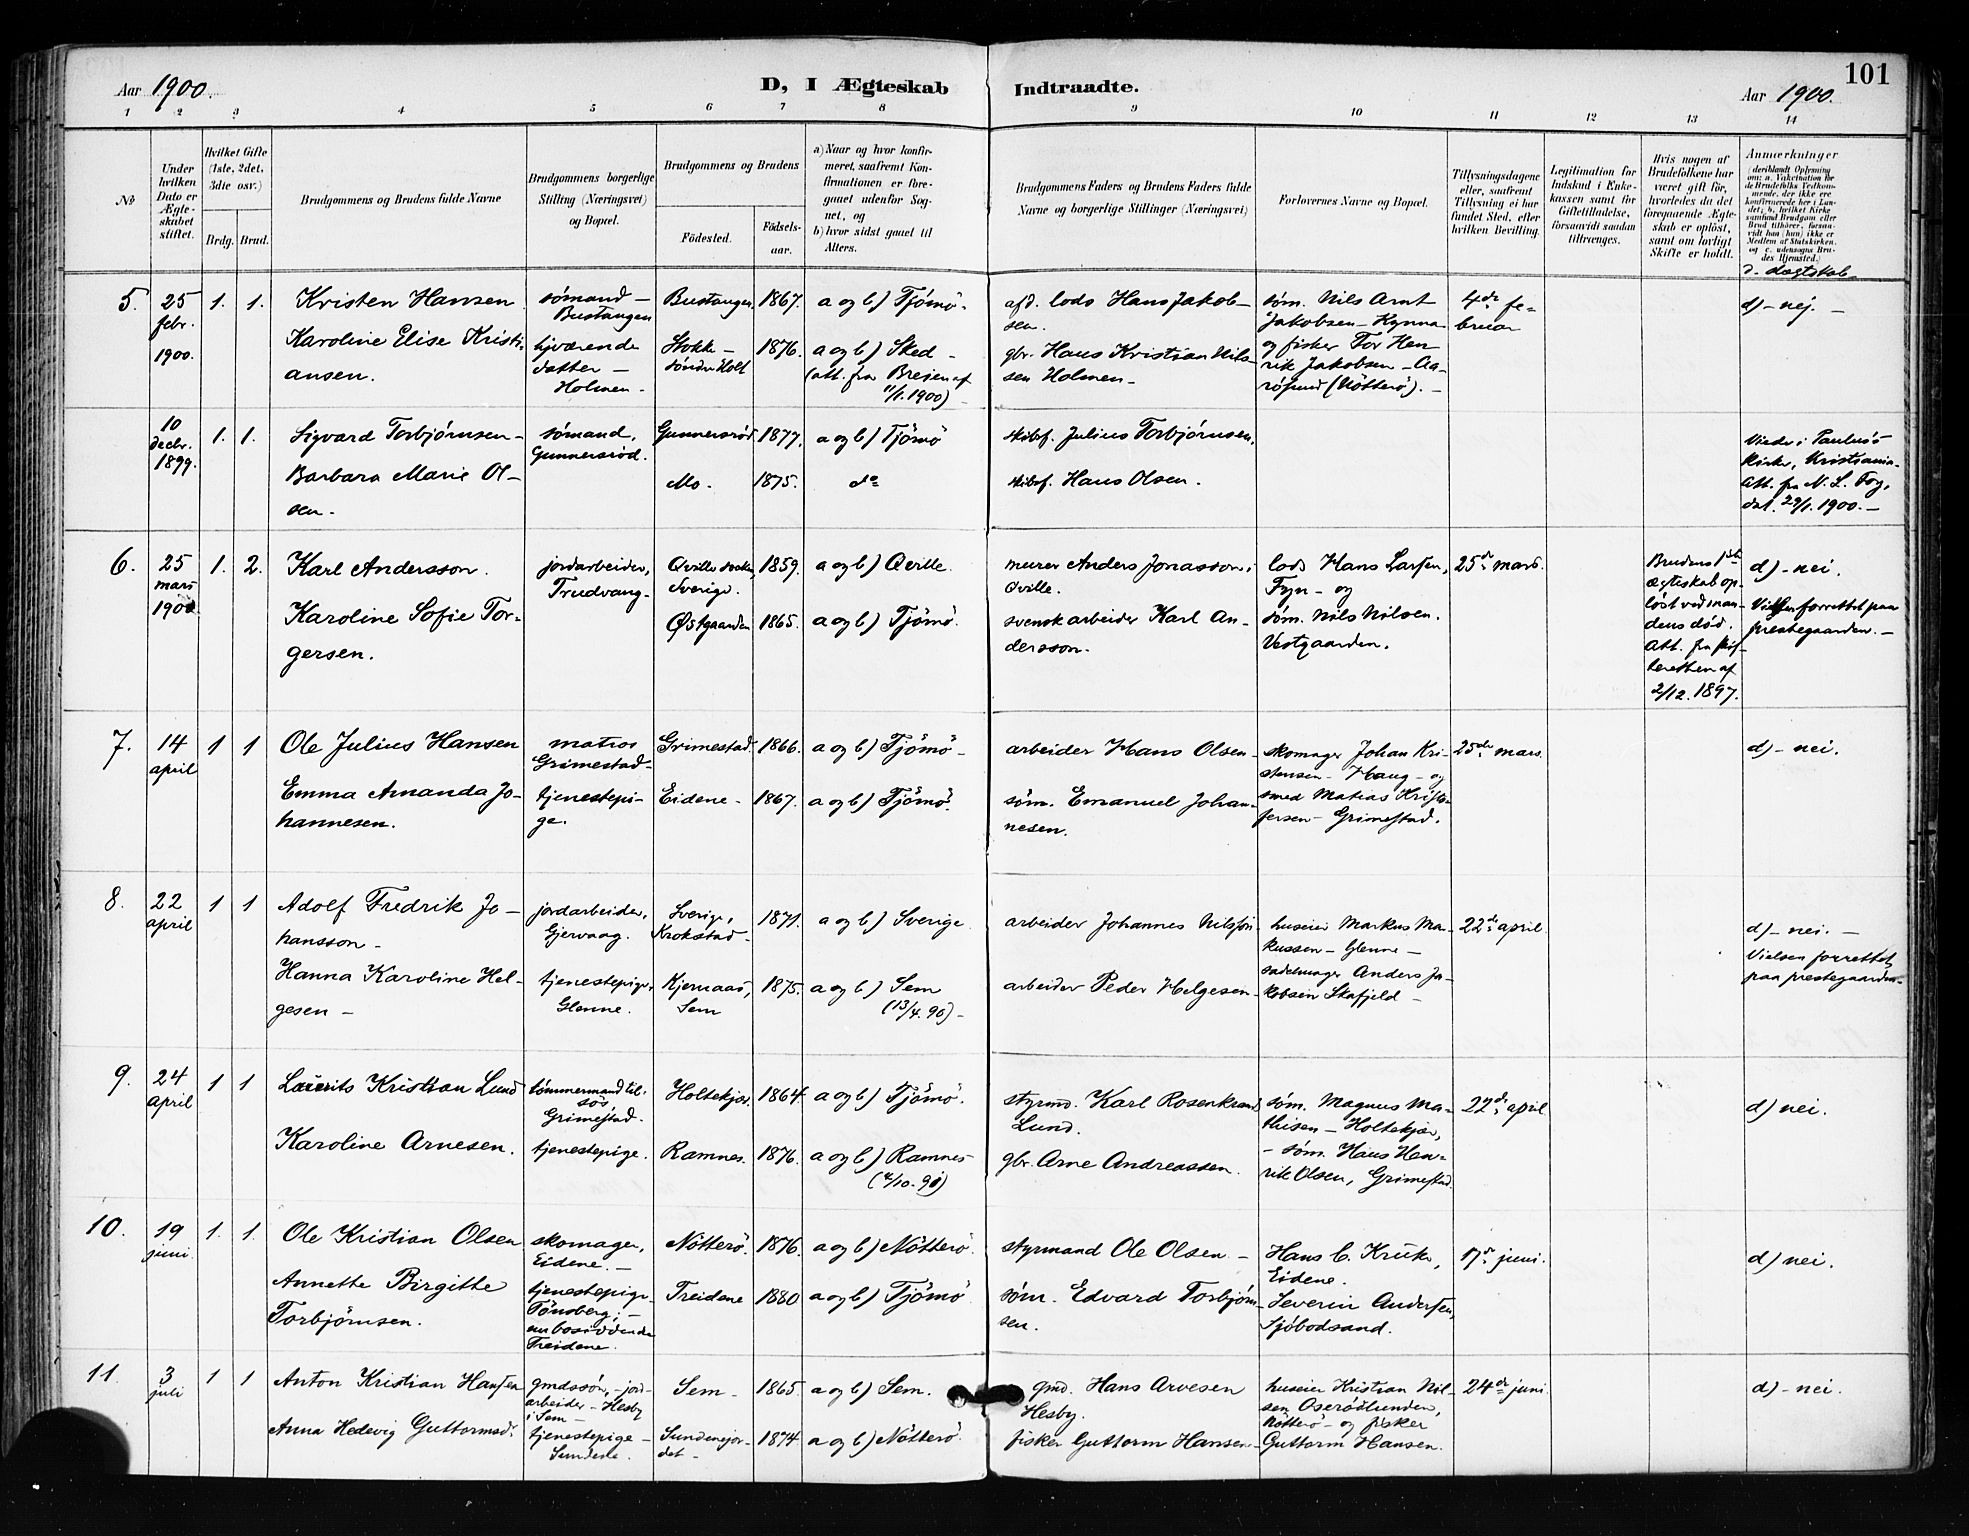 Aar 1900.
D, I Ægteskab Indtraadte.
Aar 1900.
101
1 2 3 4 5 6 7 8 9 10 11 12 13 14
№
Under hvilken Dato er Ægteskabet stiftet.
Hvilket Gifte (1ste, 2det, 3die osv.)
Brdg. Brud.
Brudgommens og Brudens fulde Navne
Brudgommens borgerlige Stilling (Næringsvei) og Bopæl.
Brudgommens og Brudens
Födested.
Födselsaar.
a) Naar og hvor konfirmeret, saafremt Konfirmationen er foregaaet udenfor Sognet, og
b) hvor sidst gaaet til Alters.
Brudgommens Faders og Brudens Faders fulde Navne og borgerlige Stillinger (Næringsvei)
Forlovernes Navne og Bopæl.
Tillysningsdagene eller, saafremt Tillysning ei har fundet Sted, efter hvilken Bevilling.
Legitimation for Indskud i Enkekassen samt for Giftetilladelse, forsaavidt saadan tiltrænges.
Hvis nogen af Brudefolkene har været gift før, hvorledes da det foregaaende Ægteskab er oplöst, samt om lovligt Skifte er holdt.
Anmærkninger
(deriblandt Oplysning om: a. Vakcination for de Brudefolks Vedkommende, der ikke ere konfirmerede her i Landet; b. hvilket Kirkesamfund Brudgom eller Brud tilhører, forsaavidt han (hun) ikke er Medlem af Statskirken, og c. udensogns Brudes Hjemsted.)
d. slægtskab
5. 25 febr. 1900. 1. 1.
Kristen Hansen
sømand – Bustangen
Bustangen 1867. a og b) Tjömö.
afd. lods Hans Jakobsen.
Karoline Elise Kristiansen.
hjværende datter – Holmen –
Stokke – søndre Holt 1876. a og b) Sked – (att. fra Breien af 11/1. 1900)
gbr. Hans Kristian Nilssen Holmen –
søm. Nils Arnt Jakobsen – Kynna og fisker Tor Henrik Jakobsen – Aarösund (Nötterö). –
4de februar
d) – nej. –
10 decbr. 1899. 1. 1.
Sigvard Torbjörnsen –
sømand, Gunnersröd.
Gunnersröd 1877. a og b) Tjömö
skibsf. Julius Torbjörnsen.
Barbara Marie Olsen –
Mo. 1875. do
skibsf. Hans Olsen.
Viede i Paulus's kirke, Kristiania. Att. fra N. L. Fog, dat. 29/1. 1900. –
6. 25 mars 1900 1. 2.
Karl Andersson.
jordarbeider, Trudvang –
Qville socken, Sverige. 1859. a og b) Qville.
murer Anders Jonasson, Qville.
Karoline Sofie Torgersen.
Østgaarden 1865. a og b) Tjömö.
svensk arbeider Karl Andersson.
lods Hans Larsen, Fyn – og søm. Nils Nilsen. Vestgaarden.
25de mars.
Brudens 1ste ægteskab oplöst ved mandens død. Att. fra skifteretten af 2/12. 1897.
d) – nei. Vielsen forrettet paa prestegaarden. –
7. 14 april 1 1
Ole Julius Hansen
matros Grimestad –
Grimestad. 1866. a og b) Tjömö –
arbeider Hans Olsen –
Emma Amanda Johannesen.
tjenestepige.
Eidene – 1867. a og b) Tjömö.
söm. Emanuel Johannesen.
skomager Johan Kristensen – Haug – og smed Matias Kristofersen – Grimestad.
25de mars.
d) – nei.
8. 22 april 1 1
Adolf Fredrik Johansson –
jordarbeider, Gjervaag.
Sverige, Krokstad – 1871. a og b) Sverige.
arbeider Johannes Nilsson
Hanna Karoline Helgesen –
tjenestepige, Glenne.
Kjernaas, Sem 1875. a og b) Sem (13/4. 90) –
arbeider Peder Helgesen –
huseier Markus Markussen – Glenne – sadelmager Anders Jakobsen Skafjeld –
22de april
d) – nei. – Vielsen forrettet paa prestegaarden –
9. 24 april 1 1
Laurits Kristian Lund
tømmermand tilsøs Grimestad.
Holtekjær. 1864. a og b) Tjömö.
styrmd. Karl Rosenkrands Lund.
Karoline Arnesen.
tjenestepige.
Ramnes. 1876. a og b) Ramnes
gbr. Arne Andreassen.
søm. Magnus Mathisen – Holtekjær, – søm. Hans Henrik Olsen, Grimestad.
22de april
d) nei.
10. 19 juni. 1. 1.
Ole Kristian Olsen
skomager, Eidene. –
Nötterö. 1876. a og b) Nötterö.
styrmand Ole Olsen –
Annette Birgithe Torbjörnsen.
tjenestepige Tönsberg, – nu bosiddende Treidene.
Treidene 1880 a og b) Tjömö
söm. Edvard Torbjörnsen.
Hans C. Kruke, Eidene. Severin Andersen, Sjöbodsand.
17de juni.
d) nei.
11. 3 juli 1 1
Anton Kristian Hansen
gmdssön, – jordarbeider – Hesby i Sem –
Sem – 1865. a og b) Sem.
gmd. Hans Arvesen Hesby.
Anna Hedevig Guttormsd.
tjenestepige – Sundene.
Sundenejordet – 1874. a og b) Nötterö.
fisker Guttorm Hansen –
huseier Kristian Nilsen Oserödlunden, Nötterö – og fisker Guttorm Hansen.
24de juni.
d) – nei.